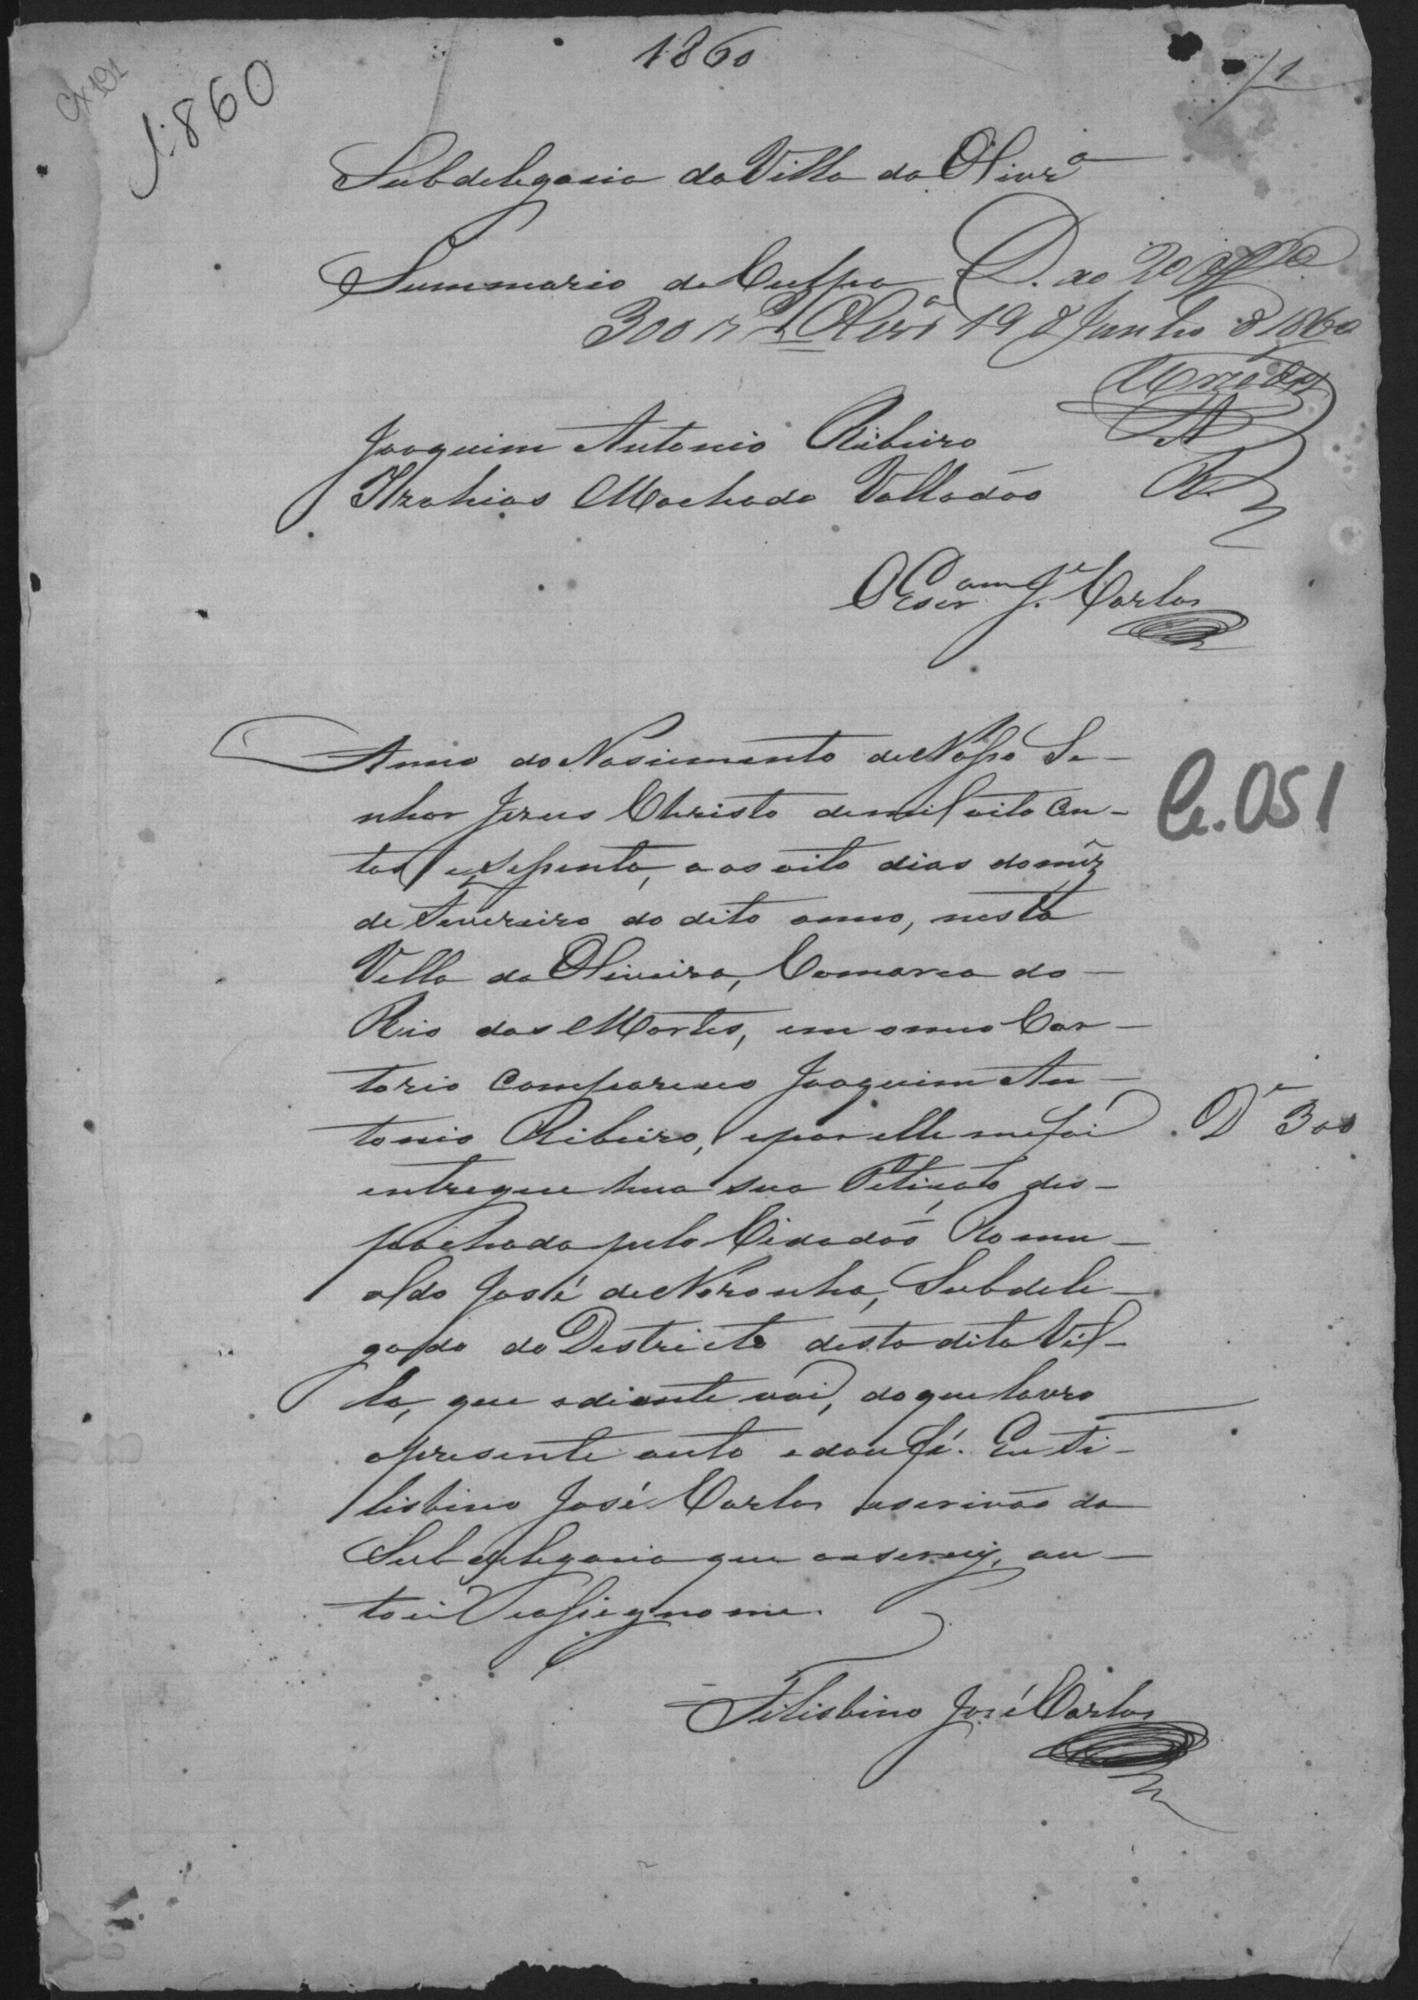 1860
1
Cx 191
1860
Subdelegacia da Villa da Olivrª
Summario de Culpa D. ao 2º Off
300 rs Olivrª 19 de Junho de 1860
Joaquim Antonio Ribeiro A
Hrakias Machado Valladão R.
O Escrᵃᵐ Jᵉ Carlos
Anno do Nascimento de Nosso Se-
nhor Jezus Christo de mil oito cen-
tos e sessenta, a os oito dias do mez
de Fevereiro do dito anno, nesta
Villa da Oliveira, Comarca do
Rio das Mortes, em o meu Car-
torio compareceo Joaquim An-
tonio Ribeiro, e por elle me foi
Dᵉ 300
entregue hua sua Petição des-
pachada pelo Cidadão Romu-
aldo José de Noronha, Subdele-
gado do Districto desta dita Vil-
la, que adiante vai, do que lavro
o presente auto e dou fé. Eu Fi-
lisbino José Carlos escrivão da
Subdelegacia que o escrevy, au-
toei e assigno me.
Filisbino José Carlos
Cr. 051